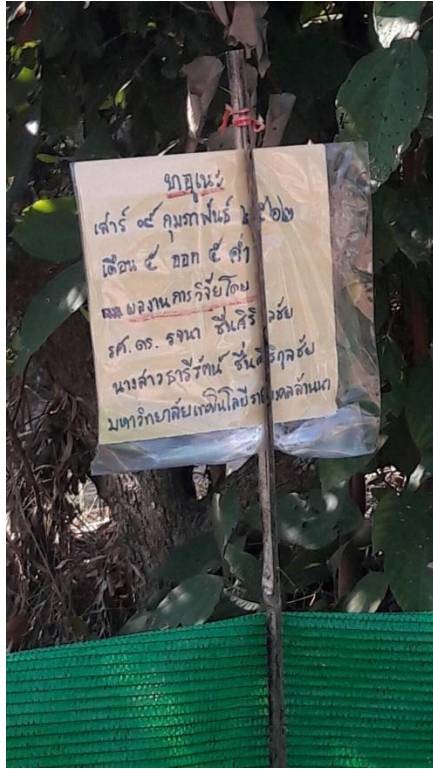 เสาร์ ๑๕ กุมภาพันธ์ ๒๕๖๒
เดือน ๕ ออก ๕ ค่ำ
ผลงานการวิจัยโดย
รศ.ดร. รจนา ชื่นศิริ ลชัย
นางสาวธารีรัตน์ ชื่นศิริกุลชัย
มหาวิทยาลัยเทคโนโลยีรา มงคลล้านนา